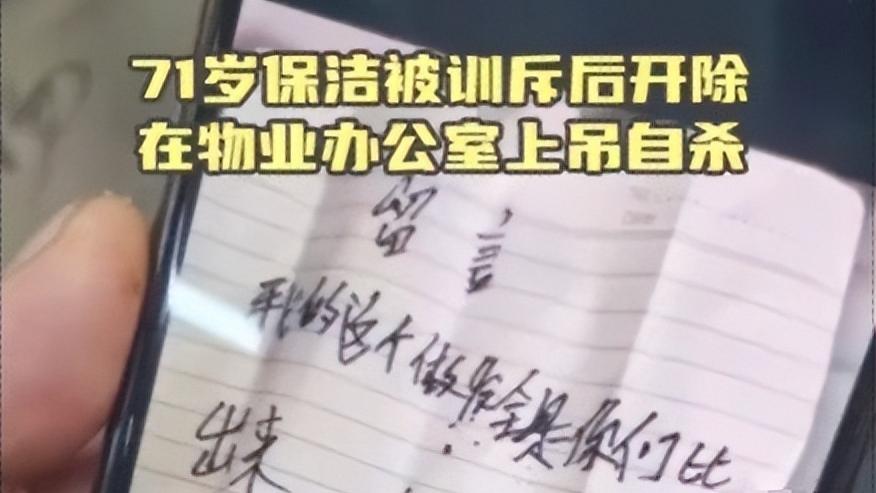 71岁保洁被训斥后开除
在物业办公室上吊自杀
留言
我的这个做发全是你们比
出来